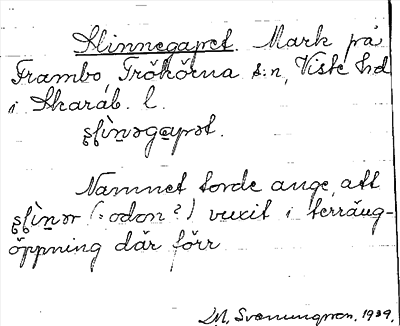 Slinnegapet. Mark på
Frambo, Trökörna s:n, Viste hd
i Skarab. l.
Namnet torde ange, att
(: odon ?) vuxit i terräng-
öppning där förr
M. Svenungsson. 1939.